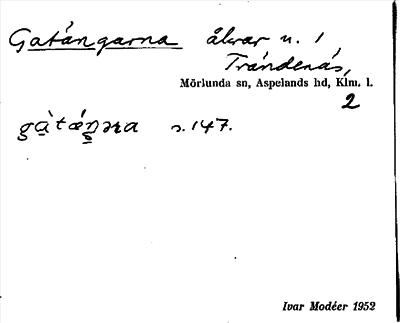 Gatángarna åkrar u. 1
Trándenäs,
Mörlunda sn, Aspelands hd, Klm. l.
2
s. 147.
Ivar Modéer 1952